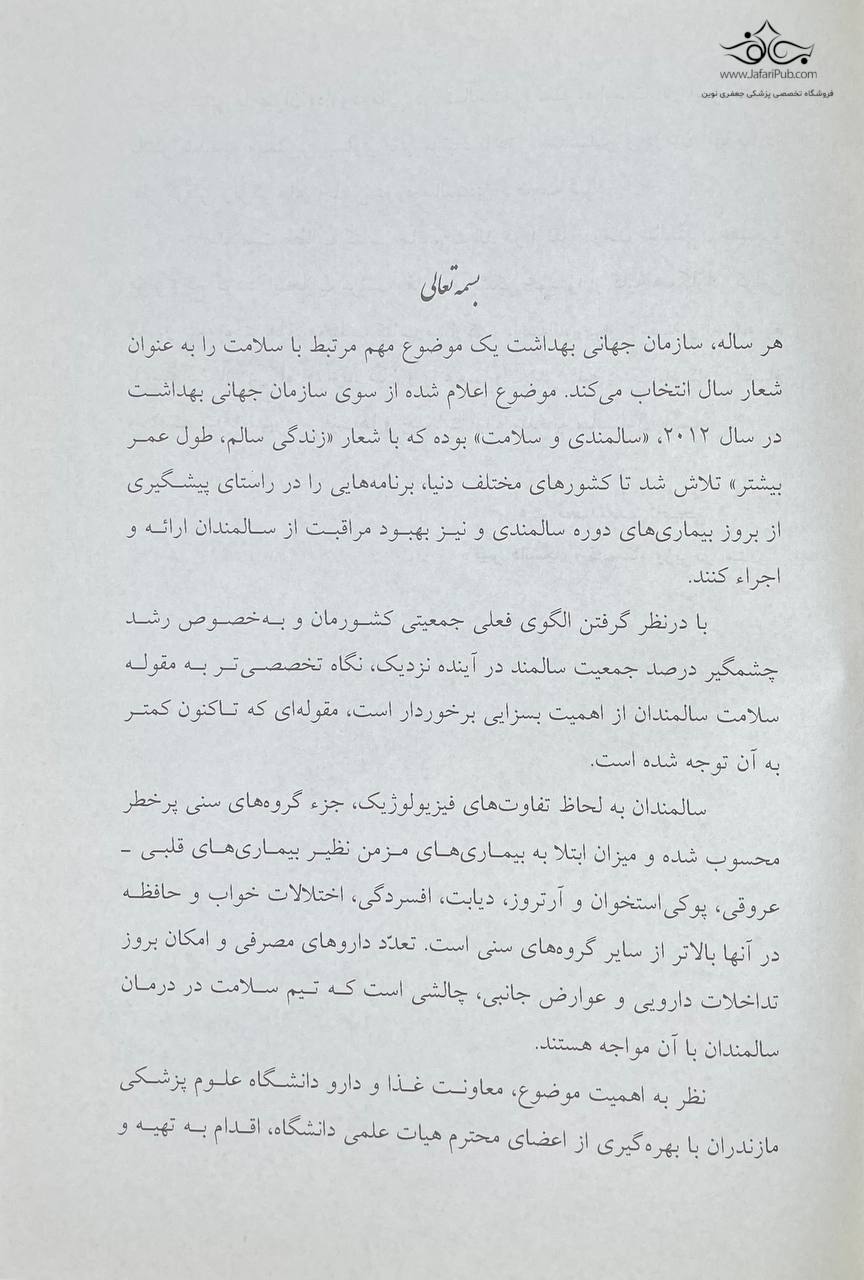 www.JafariPub.com
فروشگاه تخصصی پزشکی جعفری نوین
بسمه تعالی
هر ساله، سازمان جهانی بهداشت یک موضوع مهم مرتبط با سلامت را به عنوان
شعار سال انتخاب می‌کند. موضوع اعلام شده از سوی سازمان جهانی بهداشت
در سال ۲۰۱۲، «سالمندی و سلامت» بوده که با شعار «زندگی سالم، طول عمر
بیشتر» تلاش شد تا کشورهای مختلف دنیا، برنامه‌هایی را در راستای پیشگیری
از بروز بیماری‌های دوره سالمندی و نیز بهبود مراقبت از سالمندان ارائه و
اجراء کنند.
با درنظر گرفتن الگوی فعلی جمعیتی کشورمان و به‌خصوص رشد
چشمگیر درصد جمعیت سالمند در آینده نزدیک، نگاه تخصصی‌تر به مقوله
سلامت سالمندان از اهمیت بسزایی برخوردار است، مقوله‌ای که تاکنون کمتر
به آن توجه شده است.
سالمندان به لحاظ تفاوت‌های فیزیولوژیک، جزء گروه‌های سنی پرخطر
محسوب شده و میزان ابتلا به بیماری‌های مزمن نظیر بیماری‌های قلبی -
عروقی، پوکی‌استخوان و آرتروز، دیابت، افسردگی، اختلالات خواب و حافظه
در آنها بالاتر از سایر گروه‌های سنی است. تعدّد داروهای مصرفی و امکان بروز
تداخلات دارویی و عوارض جانبی، چالشی است که تیم سلامت در درمان
سالمندان با آن مواجه هستند.
نظر به اهمیت موضوع، معاونت غذا و دارو دانشگاه علوم پزشکی
مازندران با بهره‌گیری از اعضای محترم هیات علمی دانشگاه، اقدام به تهیه و